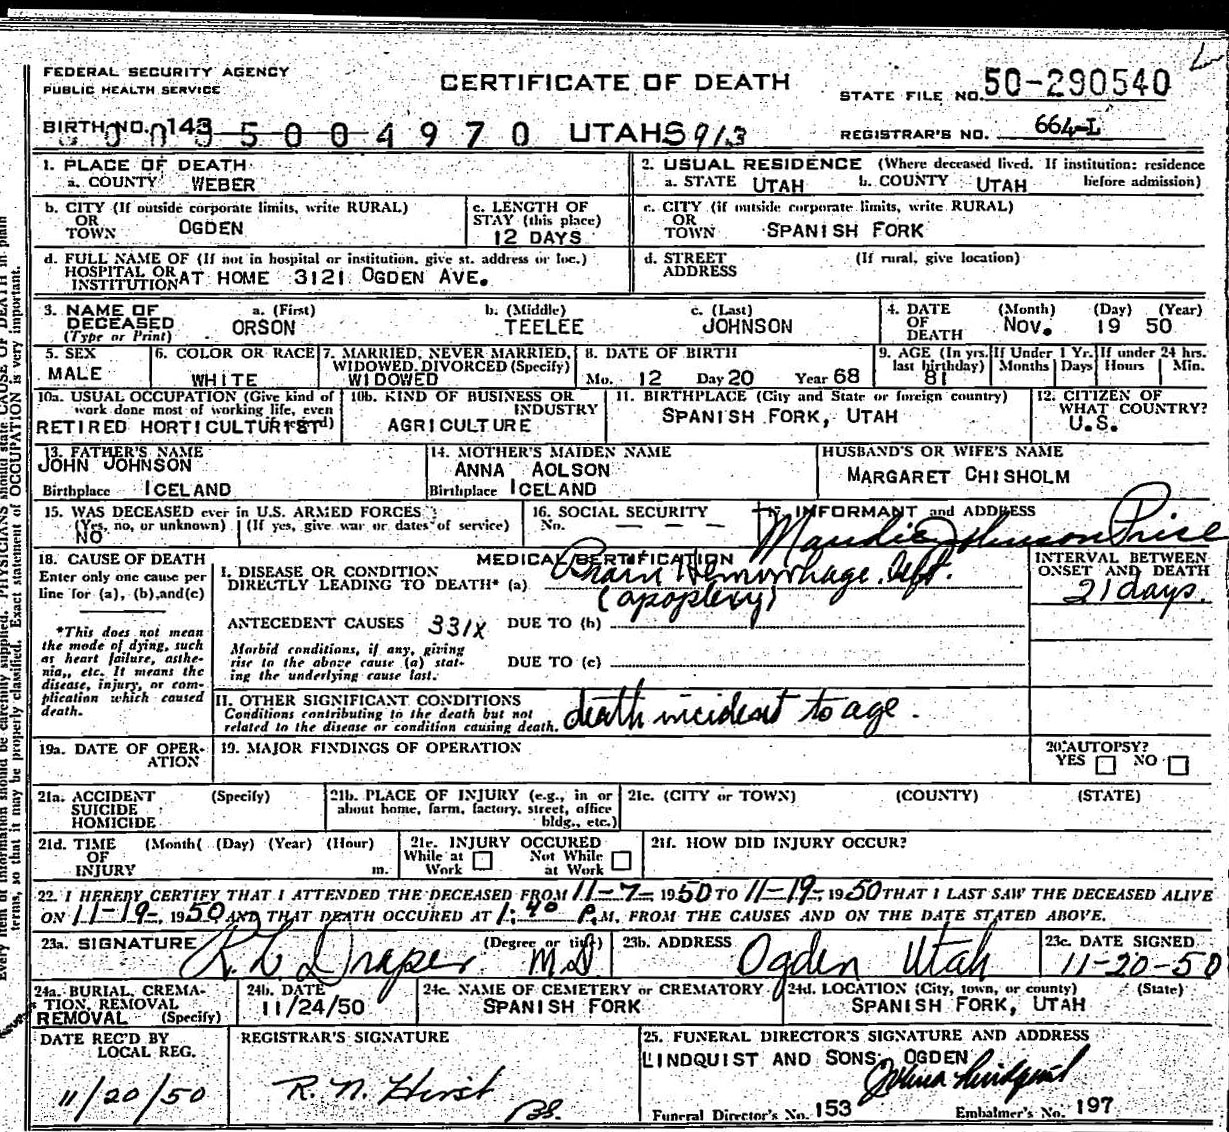 FEDERAL SECURITY AGENCY
PUBLIC HEALTH SERVICE
CERTIFICATE OF DEATH
STATE FILE NO. 50-290540
BIRTH NO. 143
5004970 UTAH S 913
REGISTRAR'S NO. 664-L
1. PLACE OF DEATH
a. COUNTY WEBER
2. USUAL RESIDENCE (Where deceased lived. If institution: residence before admission)
a. STATE UTAH b. COUNTY UTAH
b. CITY (If outside corporate limits, write RURAL)
OR
TOWN OGDEN
c. LENGTH OF
STAY (this place)
12 DAYS
c. CITY (if outside corporate limits, write RURAL)
OR
TOWN SPANISH FORK
d. FULL NAME OF (If not in hospital or institution, give st. address or loc.)
HOSPITAL OR
INSTITUTION AT HOME 3121 OGDEN AVE.
d. STREET (If rural, give location)
ADDRESS
3. NAME OF DECEASED
(Type or Print)
a. (First) ORSON
b. (Middle) TEELEE
c. (Last) JOHNSON
4. DATE OF DEATH
(Month) (Day) (Year)
NOV. 19 50
5. SEX
MALE
6. COLOR OR RACE
WHITE
7. MARRIED, NEVER MARRIED,
WIDOWED, DIVORCED (Specify)
WIDOWED
8. DATE OF BIRTH
Mo. 12 Day 20 Year 68
9. AGE (In yrs. last birthday)
81
If Under 1 Yr. Months Days
If under 24 hrs. Hours Min.
10a. USUAL OCCUPATION (Give kind of
work done most of working life, even
RETIRED HORTICULTURIST
10b. KIND OF BUSINESS OR
INDUSTRY
AGRICULTURE
11. BIRTHPLACE (City and State or foreign country)
SPANISH FORK, UTAH
12. CITIZEN OF
WHAT COUNTRY?
U.S.
13. FATHER'S NAME
JOHN JOHNSON
Birthplace ICELAND
14. MOTHER'S MAIDEN NAME
ANNA AOLSON
Birthplace ICELAND
HUSBAND'S OR WIFE'S NAME
MARGARET CHISHOLM
15. WAS DECEASED ever in U.S. ARMED FORCES?
(Yes, no, or unknown) (If yes, give war or dates of service)
NO
16. SOCIAL SECURITY
No. — — —
17. INFORMANT and ADDRESS
Maudie Johnson Price
18. CAUSE OF DEATH
Enter only one cause per
line for (a), (b), and (c)
*This does not mean
the mode of dying, such
as heart failure, asthe-
nia,, etc. It means the
disease, injury, or com-
plication which caused
death.
MEDICAL CERTIFICATION
I. DISEASE OR CONDITION
DIRECTLY LEADING TO DEATH* (a) Brain Hemorrhage. Left.
(apoplexy)
ANTECEDENT CAUSES 331X DUE TO (b)
Morbid conditions, if any, giving
rise to the above cause (a) stat-
ing the underlying cause last.
DUE TO (c)
INTERVAL BETWEEN
ONSET AND DEATH
21 days.
II. OTHER SIGNIFICANT CONDITIONS
Conditions contributing to the death but not
related to the disease or condition causing death.
death incident to age.
19a. DATE OF OPER-
ATION
19. MAJOR FINDINGS OF OPERATION
20. AUTOPSY?
YES NO
21a. ACCIDENT (Specify)
SUICIDE
HOMICIDE
21b. PLACE OF INJURY (e.g., in or
about home, farm, factory, street, office
bldg., etc.)
21c. (CITY or TOWN) (COUNTY) (STATE)
21d. TIME (Month( (Day) (Year) (Hour)
OF
INJURY m.
21e. INJURY OCCURED
While at Work Not While at Work
21f. HOW DID INJURY OCCUR?
22. I HEREBY CERTIFY THAT I ATTENDED THE DECEASED FROM 11-7-, 1950 TO 11-19-, 1950 THAT I LAST SAW THE DECEASED ALIVE
ON 11-19-, 1950 AND THAT DEATH OCCURED AT 1:40 P.M. FROM THE CAUSES AND ON THE DATE STATED ABOVE.
23a. SIGNATURE (Degree or title)
R. L. Draper MD
23b. ADDRESS
Ogden Utah
23c. DATE SIGNED
11-20-50
24a. BURIAL, CREMA-
TION, REMOVAL
REMOVAL (Specify)
24b. DATE
11/24/50
24c. NAME OF CEMETERY or CREMATORY
SPANISH FORK
24d. LOCATION (City, town, or county) (State)
SPANISH FORK, UTAH
DATE REC'D BY
LOCAL REG.
11/20/50
REGISTRAR'S SIGNATURE
R. N. Hirst
25. FUNERAL DIRECTOR'S SIGNATURE AND ADDRESS
LINDQUIST AND SONS, OGDEN
Funeral Director's No. 153 Embalmer's No. 197
Every item of information should be carefully supplied. PHYSICIANS should state CAUSE OF DEATH in plain
terms, so that it may be properly classified. Exact statement of OCCUPATION is very important.